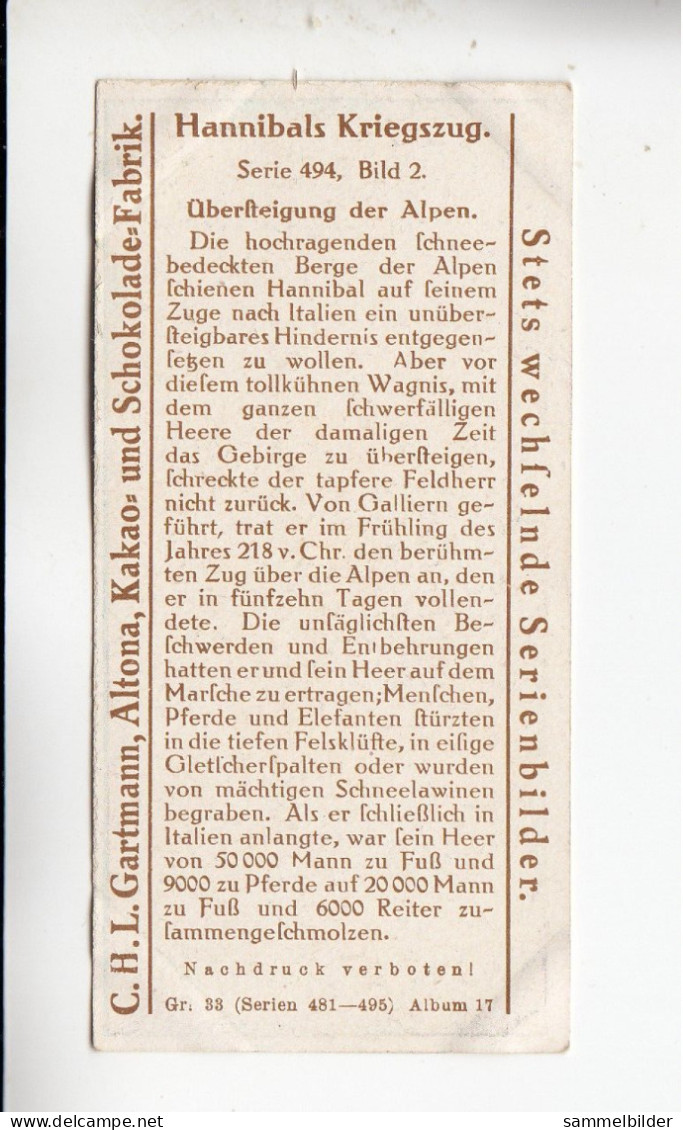 C.H.L. Gartmann, Altona, Kakao= und Schokolade=Fabrik.
Hannibals Kriegszug.
Serie 494, Bild 2.
Überſteigung der Alpen.
Die hochragenden ſchnee-
bedeckten Berge der Alpen
ſchienen Hannibal auf ſeinem
Zuge nach Italien ein unüber-
ſteigbares Hindernis entgegen-
ſetzen zu wollen. Aber vor
dieſem tollkühnen Wagnis, mit
dem ganzen ſchwerfälligen
Heere der damaligen Zeit
das Gebirge zu überſteigen,
ſchreckte der tapfere Feldherr
nicht zurück. Von Galliern ge-
führt, trat er im Frühling des
Jahres 218 v. Chr. den berühm-
ten Zug über die Alpen an, den
er in fünfzehn Tagen vollen-
dete. Die unſäglichſten Be-
ſchwerden und Entbehrungen
hatten er und ſein Heer auf dem
Marſche zu ertragen; Menſchen,
Pferde und Elefanten ſtürzten
in die tiefen Felsklüfte, in eiſige
Gletſcherſpalten oder wurden
von mächtigen Schneelawinen
begraben. Als er ſchließlich in
Italien anlangte, war ſein Heer
von 50 000 Mann zu Fuß und
9000 zu Pferde auf 20 000 Mann
zu Fuß und 6000 Reiter zu-
ſammengeſchmolzen.
Nachdruck verboten!
Gr. 33 (Serien 481—495) Album 17
Stets wechſelnde Serienbilder.
delcampe.net
sammelbilder